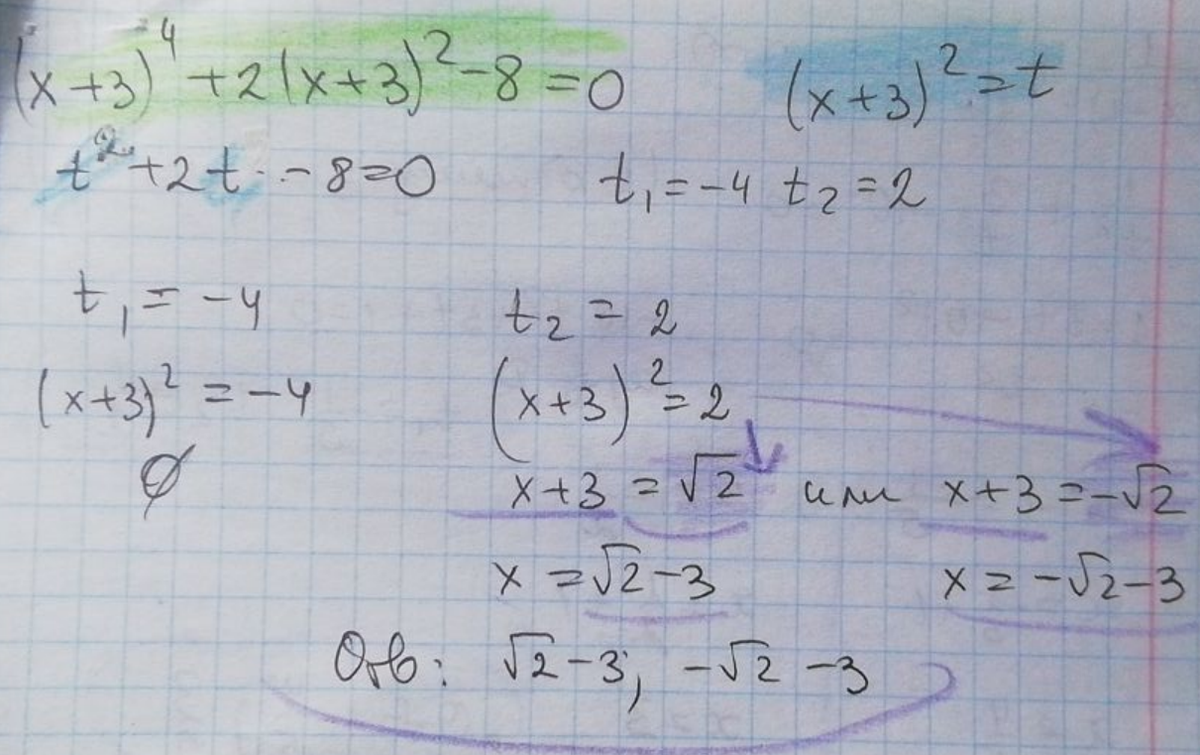 (x+3)⁴+2(x+3)²-8=0 (x+3)²=t
t²+2t-8=0 t₁=-4 t₂=2
t₁=-4 t₂=2
(x+3)²=-4 (x+3)²=2
∅ x+3=√2 или x+3=-√2
x=√2-3 x=-√2-3
Отв: √2-3; -√2-3